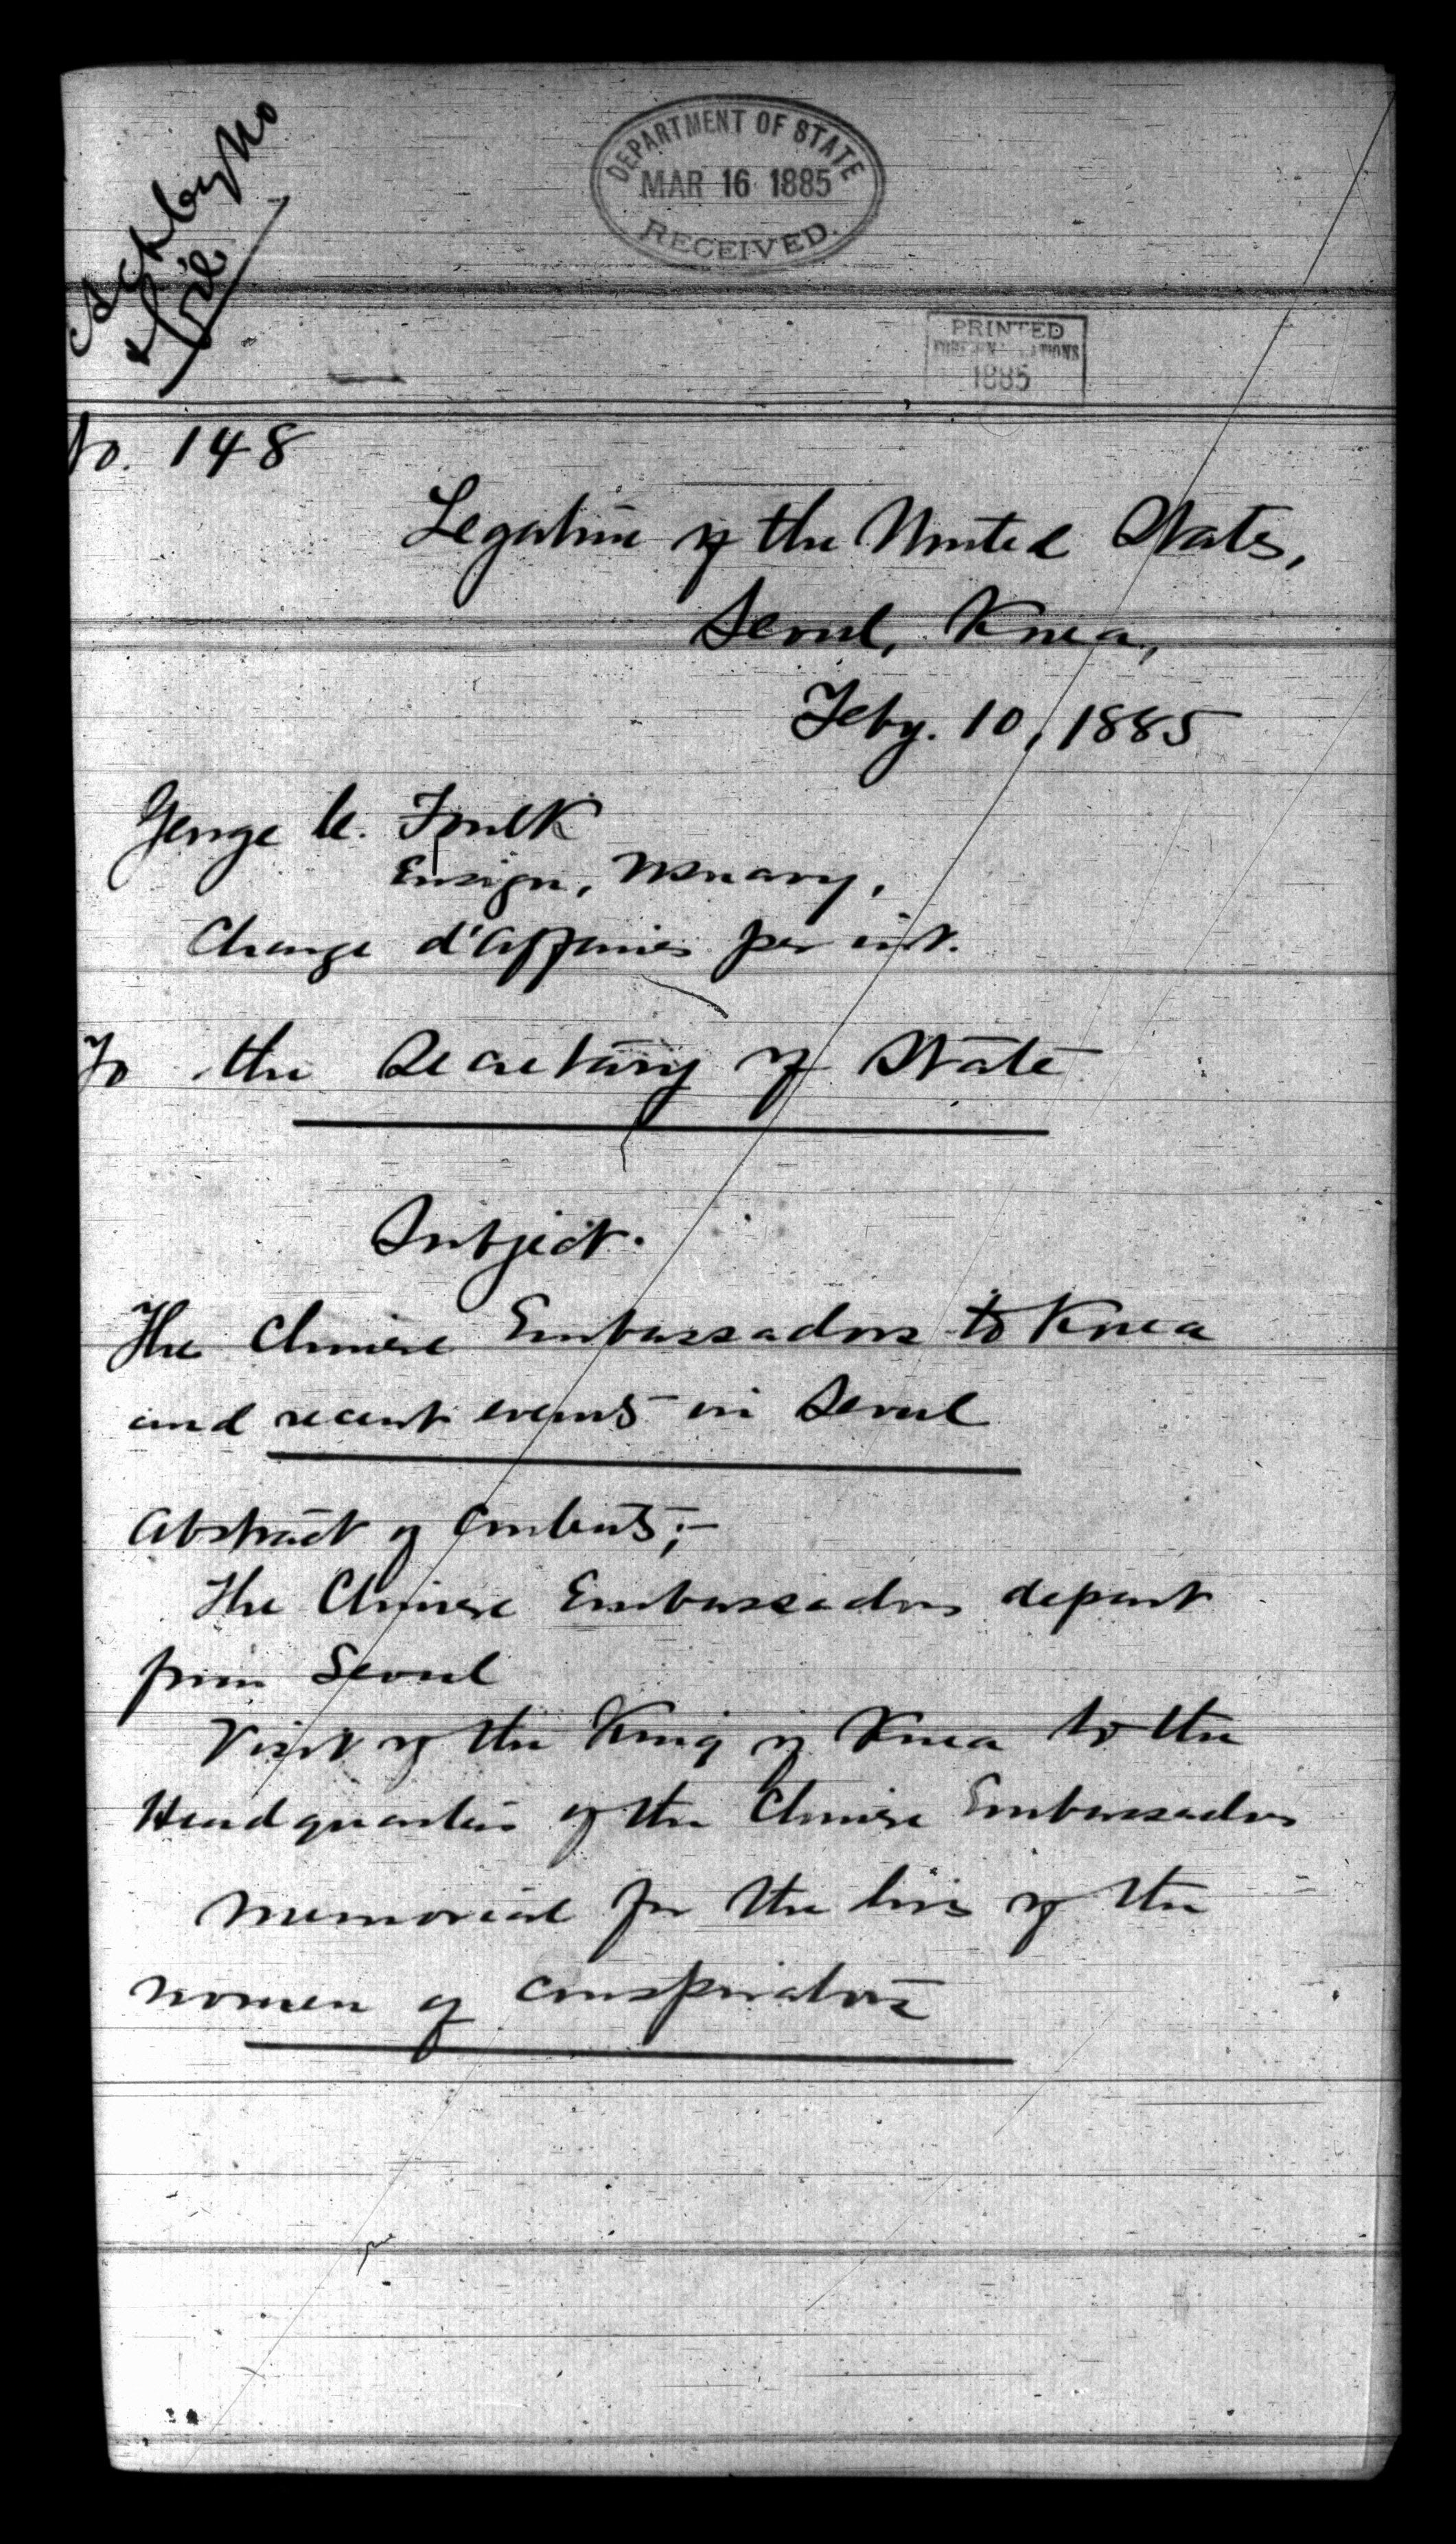 DEPARTMENT OF STATE
MAR 16 1885
RECEIVED.
Ack by No
& file
PRINTED
FOREIGN RELATIONS
1885
No. 148
Legation of the United States,
Seoul, Korea,
Feby. 10, 1885
George C. Foulk
Ensign, US Navy,
Charge d'Affaires per int.
To the Secretary of State
Subject.
The Chinese Embassadors to Korea
and recent events in Seoul
Abstract of Contents;-
The Chinese Embassadors depart
from Seoul
Visit of the King of Korea to the
Headquarters of the Chinese Embassadors
Memorial for the lives of the
women of conspirators